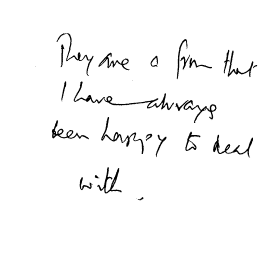 They are a firm that
I have always
been happy to deal
with.